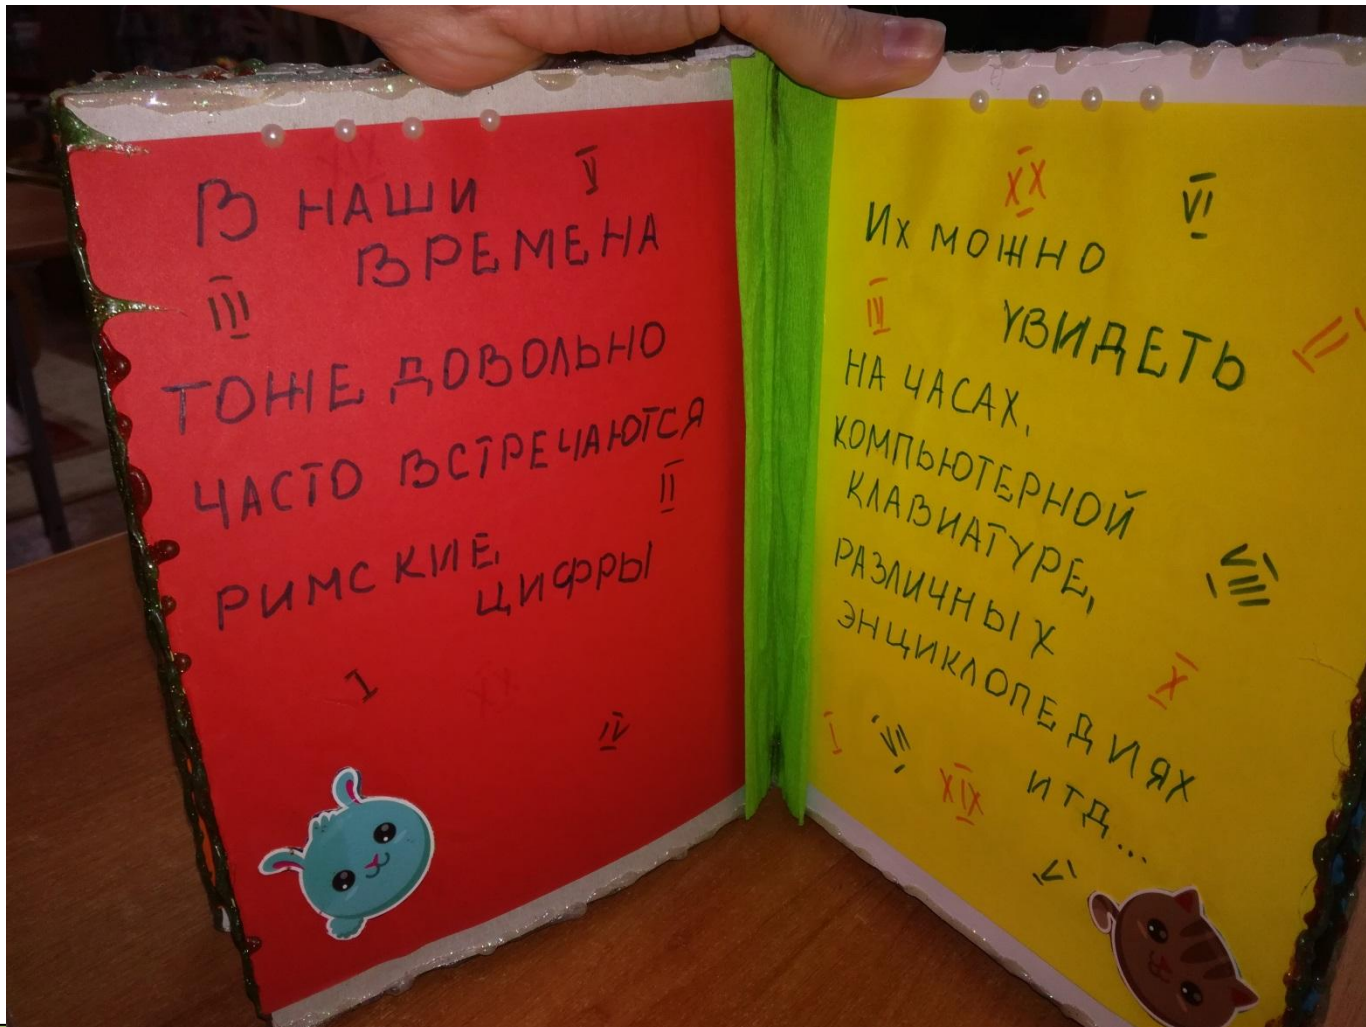 V
В НАШИ
ВРЕМЕНА
III
ТОЖЕ ДОВОЛЬНО
ЧАСТО ВСТРЕЧАЮТСЯ
II
РИМСКИЕ
ЦИФРЫ
I
XX
IV
XX
VI
Их МОЖНО
III
УВИДЕТЬ
НА ЧАСАХ,
КОМПЬЮТЕРНОЙ
КЛАВИАТУРЕ,
РАЗЛИЧНЫХ
ЭНЦИКЛОПЕДИЯХ
X
I
VII
XIX
И ТД...
V